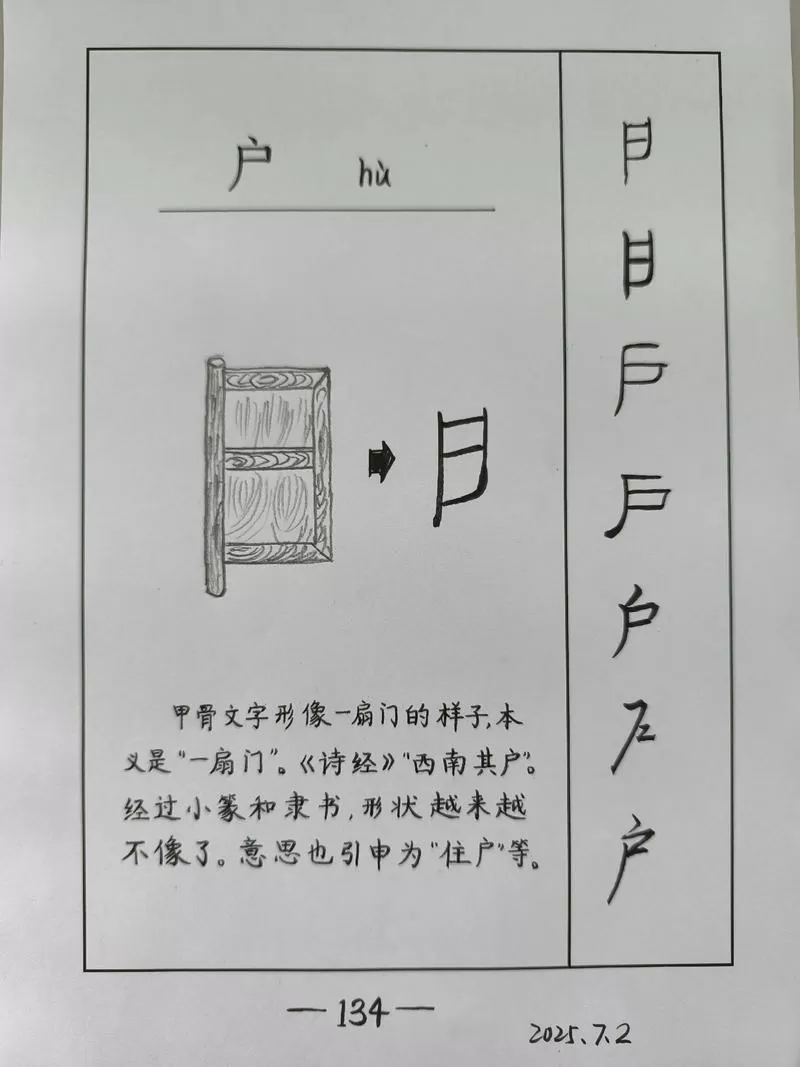 户 hù
甲骨文字形像一扇门的样子,本
义是“一扇门”。《诗经》“西南其户”。
经过小篆和隶书,形状越来越
不像了。意思也引申为“住户”等。
户
户
户
户
户
户
户
户
—134—
2025.7.2